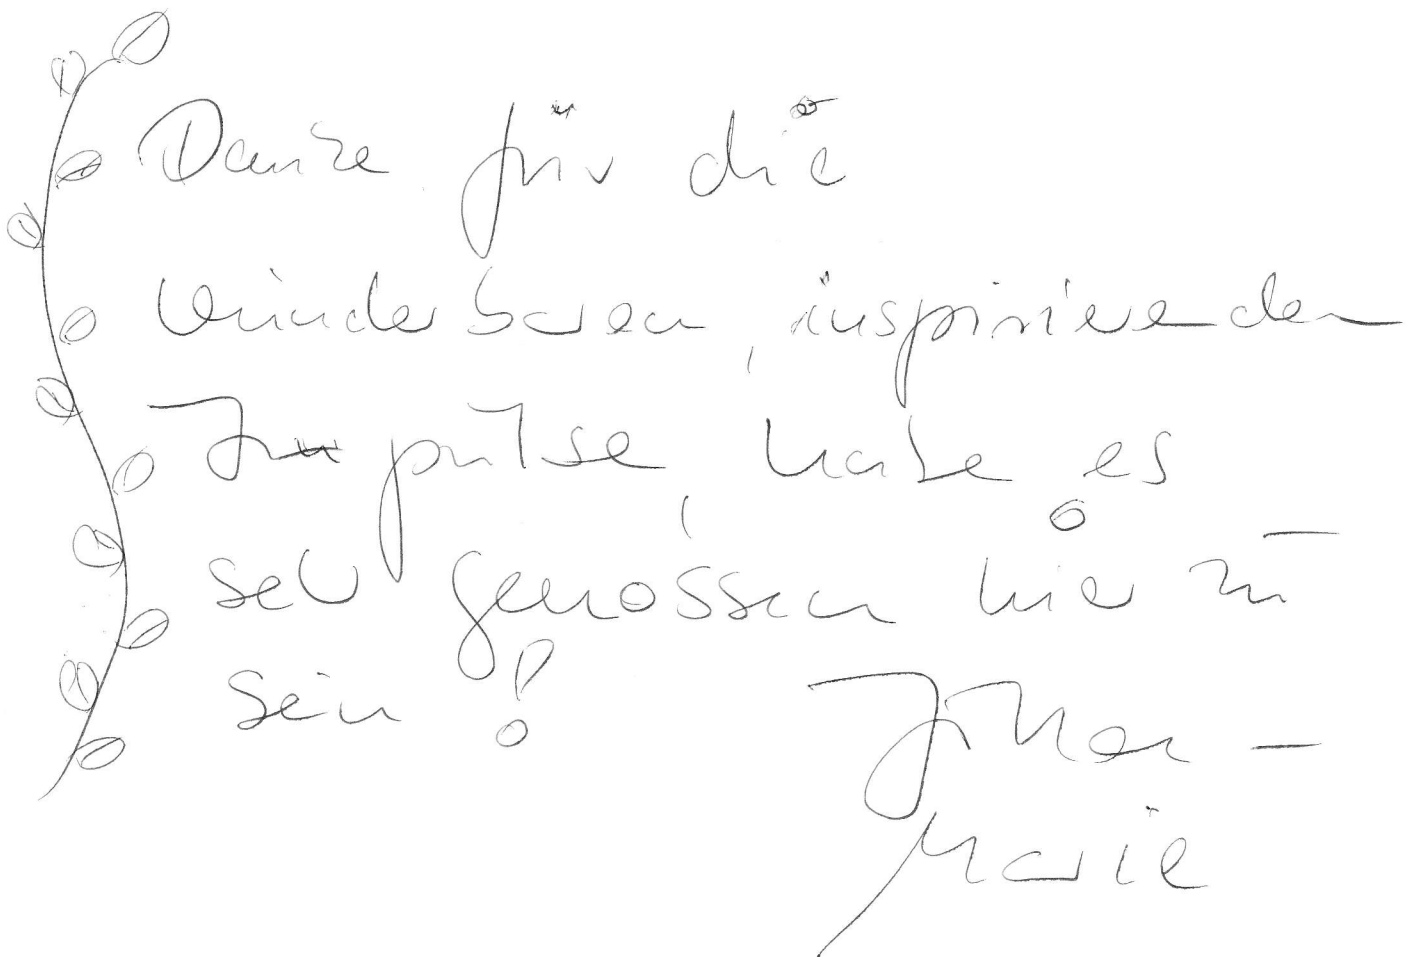 Danke für die
wunderbaren, inspirierenden
Impulse, habe es
sehr genossen hier zu
sein!
Marie